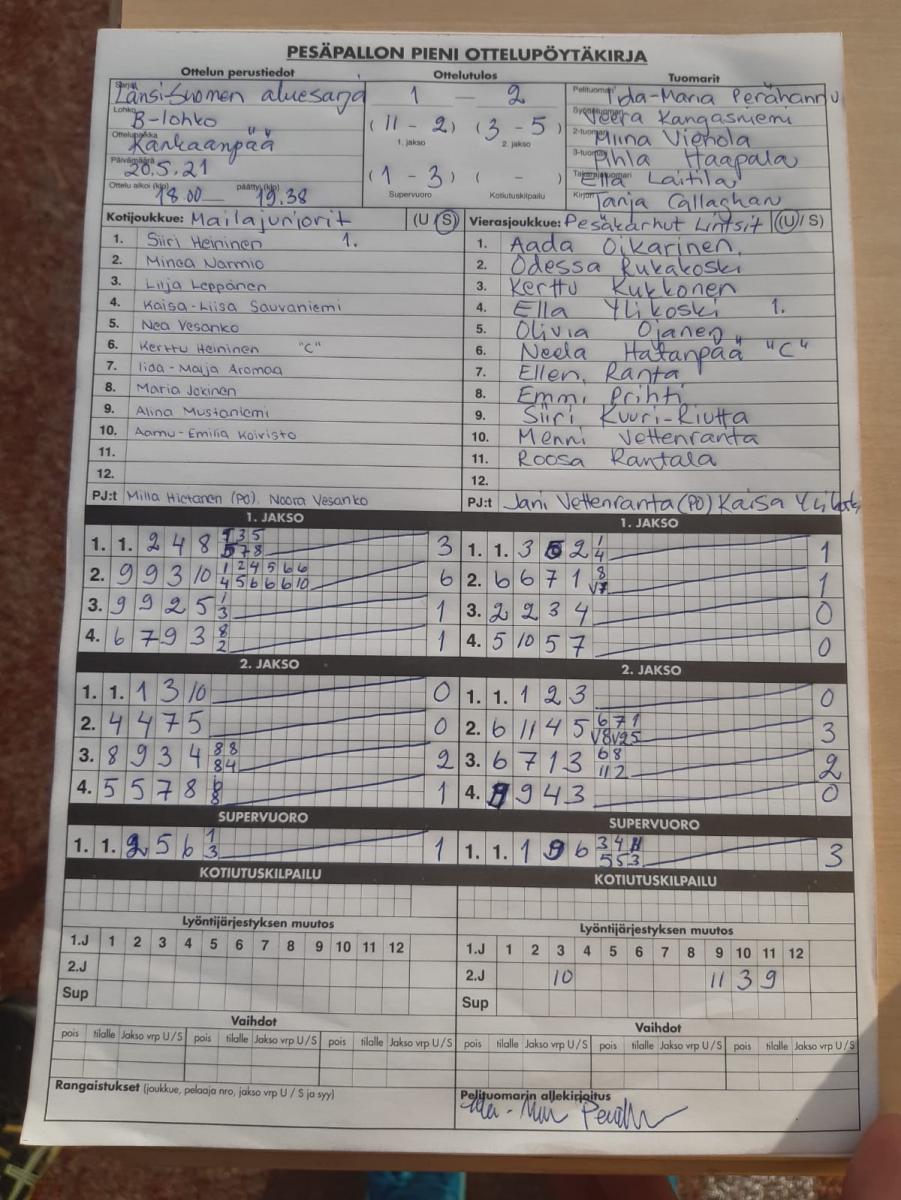 PESÄPALLON PIENI OTTELUPÖYTÄKIRJA
Ottelun perustiedot Ottelutulos Tuomarit
Sarja Länsi-Suomen aluesarja 1 — 2 Pelituomari Iida-Maria Perähannu
Lohko B-lohko (11 - 2) (3 - 5) Syöttötuomari Veera Kangasniemi
1. jakso 2. jakso 2-tuomari Miina Vienola
Ottelupaikka Kankaanpää 3-tuomari Pihla Haapala
Päivämäärä 20.5.21 (1 - 3) ( - ) Takarajatuomari Ella Laitila
Ottelu alkoi (klo) 18.00 — päättyi (klo) 19.38 Supervuoro Kotiutuskilpailu Kirjuri Tanja Callaghan
Kotijoukkue: Mailajuniorit (U / S) Vierasjoukkue: Pesäkarhut Lintsit (U / S)
1. Siiri Heininen 1. 1. Aada Oikarinen
2. Minea Narmio 2. Odessa Rukakoski
3. Lilja Leppänen 3. Kerttu Kukkonen
4. Kaisa-Liisa Sauvaniemi 4. Ella Ylikoski 1.
5. Nea Vesanko 5. Olivia Ojanen
6. Kerttu Heininen "C" 6. Neela Hatanpää "C"
7. Iida-Maija Aromaa 7. Ellen Ranta
8. Maria Jokinen 8. Emmi Prihti
9. Alina Mustaniemi 9. Siiri Kuuri-Riutta
10. Aamu-Emilia Koivisto 10. Menni Vettenranta
11. 11. Roosa Rantala
12. 12.
PJ:t Milla Hietanen (PO). Noora Vesanko PJ:t Jani Vettenranta (PO) Kaisa Ylikoski
1. JAKSO 1. JAKSO
1. 1. 2 4 8 1 3 5 5 7 8 3 1. 1. 3 5 2 1 4 1
2. 9 9 3 10 1 2 4 5 6 6 4 5 6 6 6 10 6 2. 6 6 7 1 8 V7 1
3. 9 9 2 5 1 3 1 3. 2 2 3 4 0
4. 6 7 9 3 8 2 1 4. 5 10 5 7 0
2. JAKSO 2. JAKSO
1. 1. 1 3 10 0 1. 1. 1 2 3 0
2. 4 4 7 5 0 2. 6 11 4 5 6 7 1 V8 V2 5 3
3. 8 9 3 4 8 8 8 4 2 3. 6 7 1 3 6 8 11 2 2
4. 5 5 7 8 6 8 1 4. 9 9 4 3 0
SUPERVUORO SUPERVUORO
1. 1. 2 5 6 1 3 1 1. 1. 1 9 6 3 4 11 5 5 3 3
KOTIUTUSKILPAILU KOTIUTUSKILPAILU
Lyöntijärjestyksen muutos Lyöntijärjestyksen muutos
1.J 1 2 3 4 5 6 7 8 9 10 11 12 1.J 1 2 3 4 5 6 7 8 9 10 11 12
2.J 2.J 10 11 3 9
Sup Sup
Vaihdot Vaihdot
pois tilalle Jakso vrp U / S pois tilalle Jakso vrp U / S pois tilalle Jakso vrp U / S pois tilalle Jakso vrp U / S pois tilalle Jakso vrp U / S pois tilalle Jakso vrp U / S
Rangaistukset (joukkue, pelaaja nro, jakso vrp U / S ja syy) Pelituomarin allekirjoitus